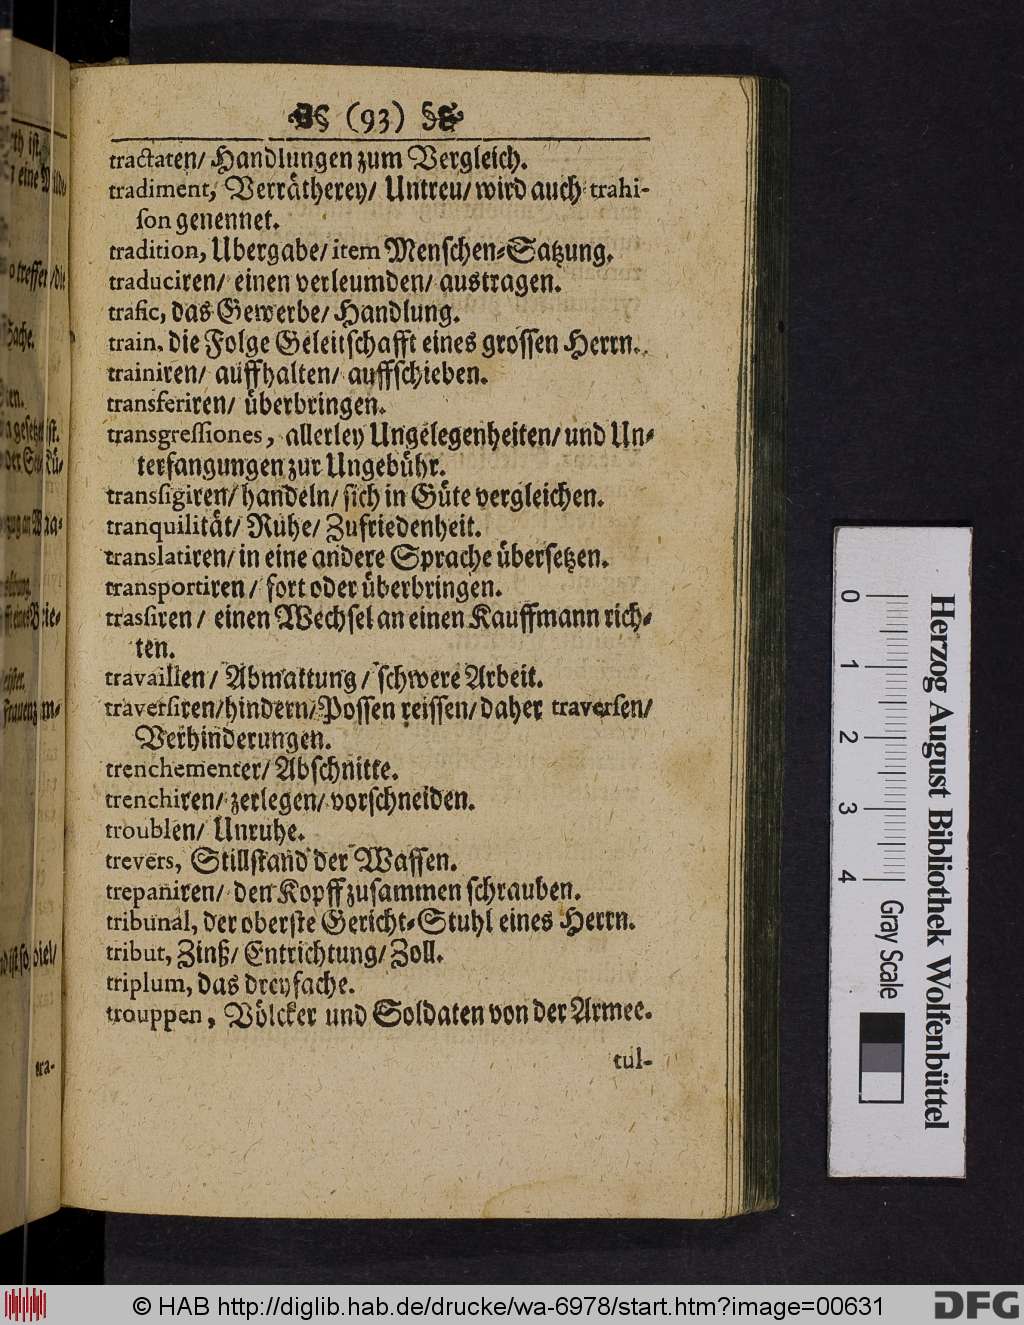 (93)
tractaten/ Handlungen zum Vergleich.
tradiment, Verrätherey/ Untreu/ wird auch trahi-
son genennet.
tradition, Ubergabe/ item Menschen-Satzung.
traduciren/ einen verleumden/ austragen.
trafic, das Gewerbe/ Handlung.
train, die Folge Geleitschafft eines grossen Herrn.
trainiren/ auffhalten/ auffschieben.
transferiren/ überbringen.
transgressiones, allerley Ungelegenheiten/ und Un-
terfangungen zur Ungebühr.
transigiren/ handeln/ sich in Güte vergleichen.
tranquilität/ Ruhe/ Zufriedenheit.
translatiren/ in eine andere Sprache übersetzen.
transportiren/ fort oder überbringen.
trassiren/ einen Wechsel an einen Kauffmann rich-
ten.
travaillen/ Abmattung/ schwere Arbeit.
traversiren/ hindern/ Possen reissen/ daher traversen/
Verhinderungen.
trenchementer/ Abschnitte.
trenchiren/ zerlegen/ vorschneiden.
troublen/ Unruhe.
trevers, Stillstand der Waffen.
trepaniren/ den Kopff zusammen schrauben.
tribunal, der oberste Gericht-Stuhl eines Herrn.
tribut, Zinß/ Entrichtung/ Zoll.
triplum, das dreyfache.
trouppen, Völcker und Soldaten von der Armee.
tul-
0 1 2 3 4
Gray Scale
Herzog August Bibliothek Wolfenbüttel
© HAB http://diglib.hab.de/drucke/wa-6978/start.htm?image=00631
DFG